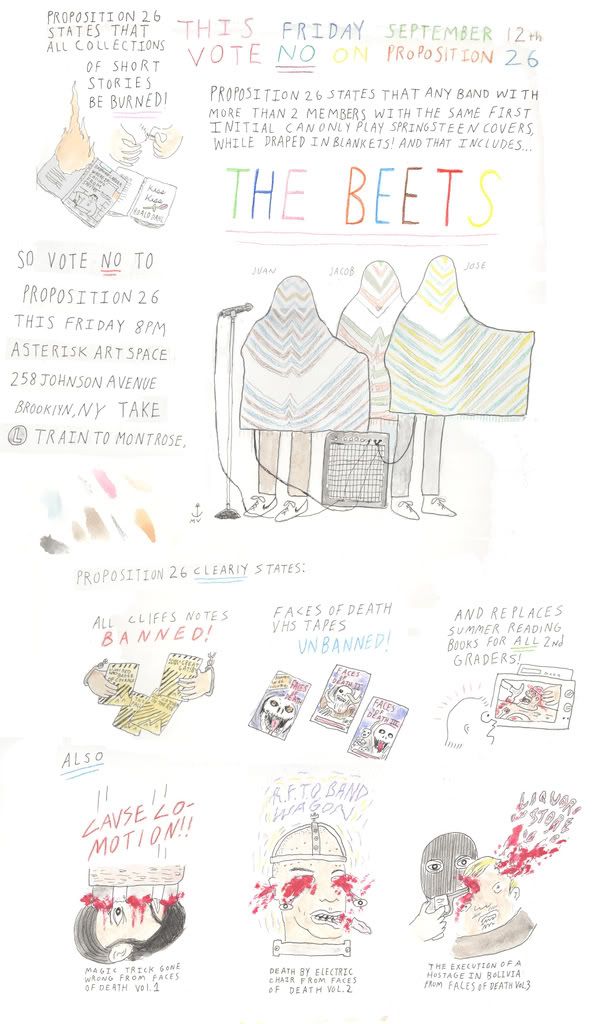 PROPOSITION 26
STATES THAT
ALL COLLECTIONS
OF SHORT
STORIES
BE BURNED!
KISS
KISS
ROALD DAHL
THIS FRIDAY SEPTEMBER 12th
VOTE NO ON PROPOSITION 26
PROPOSITION 26 STATES THAT ANY BAND WITH
MORE THAN 2 MEMBERS WITH THE SAME FIRST
INITIAL CAN ONLY PLAY SPRINGSTEEN COVERS,
WHILE DRAPED IN BLANKETS! AND THAT INCLUDES...
THE BEETS
JUAN JACOB JOSE
SO VOTE NO TO
PROPOSITION 26
THIS FRIDAY 8PM
ASTERISK ART SPACE
258 JOHNSON AVENUE
BROOKLYN, NY TAKE
L TRAIN TO MONTROSE.
MV
PROPOSITION 26 CLEARLY STATES:
ALL CLIFFS NOTES
BANNED!
FACES OF DEATH
VHS TAPES
UNBANNED!
FACES OF
DEATH
FACES OF
DEATH II
FACES
OF
DEATH III
AND REPLACES
SUMMER READING
BOOKS FOR ALL 2nd
GRADERS!
ALSO
CAUSE CO-
MOTION!!
MAGIC TRICK GONE
WRONG FROM FACES
OF DEATH VOL.1
R.F.T.O BAND
WAGON
DEATH BY ELECTRIC
CHAIR FROM FACES
OF DEATH VOL.2
LIQUOR
STORE
THE EXECUTION OF A
HOSTAGE IN BOLIVIA
FROM FACES OF DEATH VOL.3